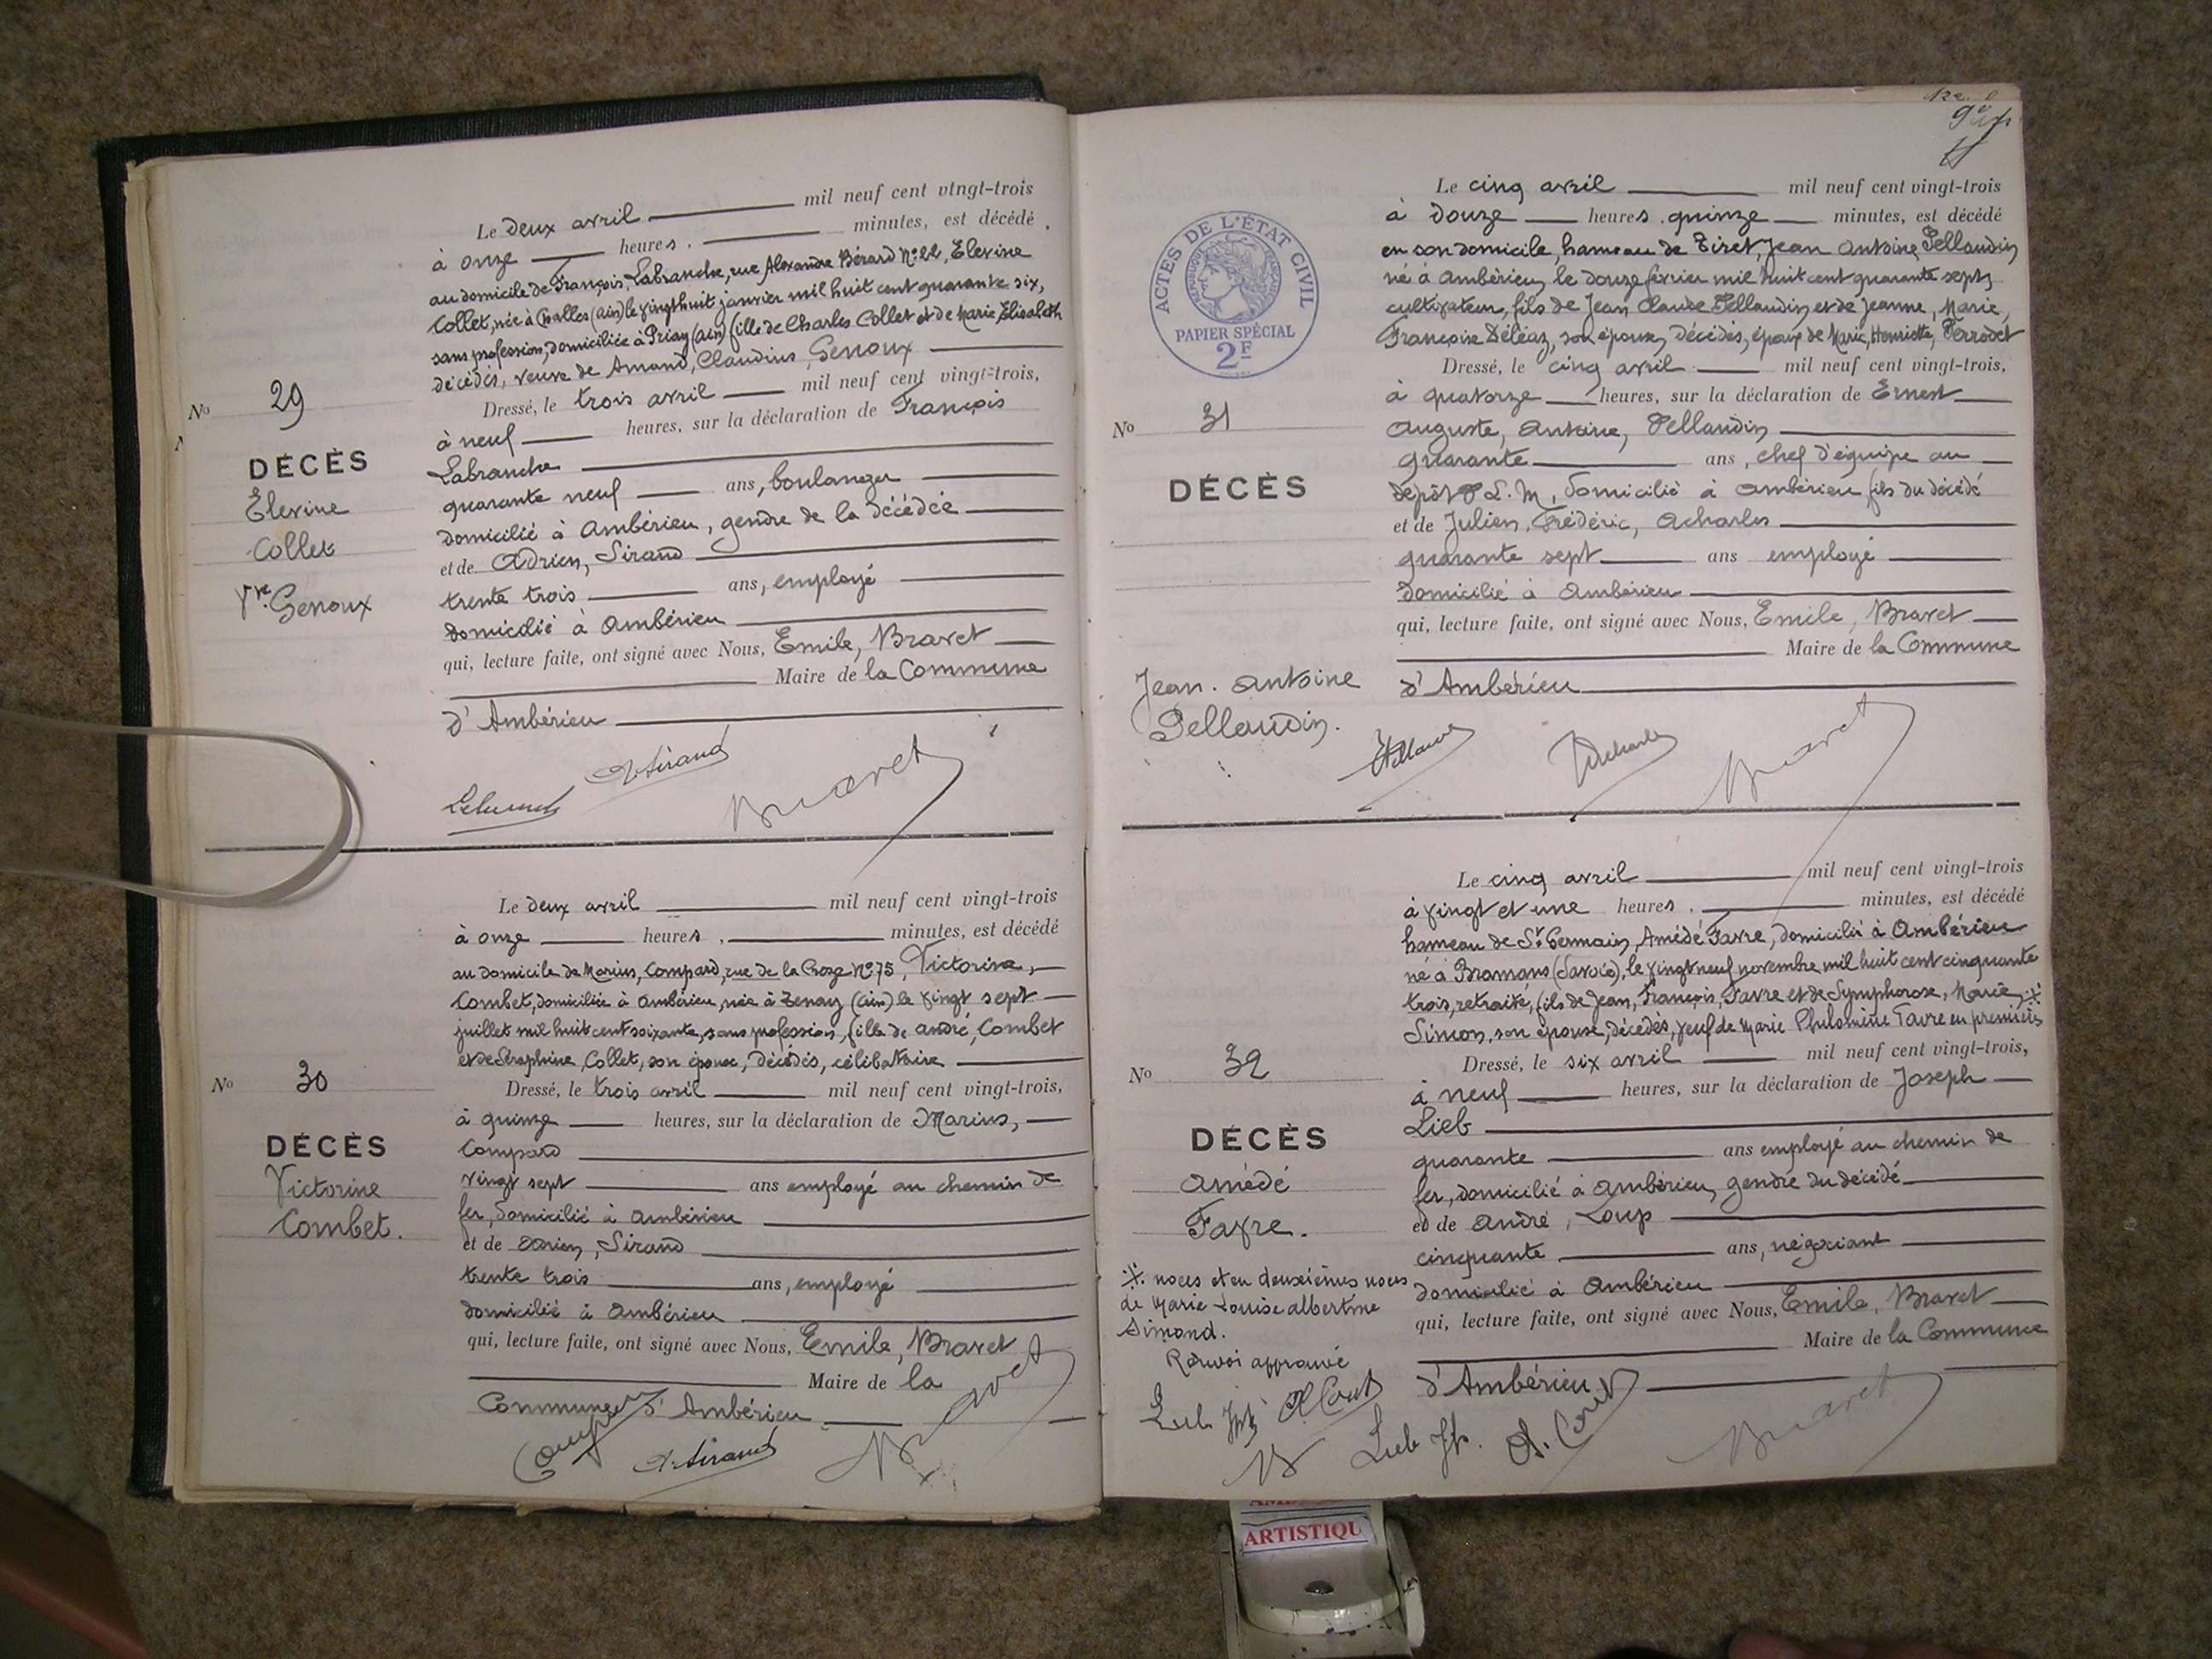 Le deux avril mil neuf cent vingt-trois
à onze heures. minutes, est décédé
au domicile de François, Labranche, rue Alexandre Bérard N° 22, Elevine
Collet, née à Challes (ain) le vingthuit janvier mil huit cent quarante six,
sans profession, domiciliée à Priay (ain) fille de Charles Collet et de Marie Elisabeth
décédés, veuve de Amand, Claudius, Genoux
Dressé, le trois avril mil neuf cent vingt-trois,
No 29
à neuf heures, sur la déclaration de François
Labranche
DÉCÈS
quarante neuf ans, boulanger
Elevine
domicilié à Ambérieu, gendre de la décédée
Collet
et de Adrien, Siraud
Vve Genoux
trente trois ans, employé
domicilié à Ambérieu
qui, lecture faite, ont signé avec Nous, Emile, Bravet
Maire de la Commune
d'Ambérieu
A. Siraud
Bravet
Le deux avril mil neuf cent vingt-trois
à onze heures, minutes, est décédé
au domicile de Marius, Compard, rue de la Croze N° 75, Victorine,
Combet, domiciliée à Ambérieu, née à Tenay (ain) le vingt sept
juillet mil huit cent soixante, sans profession, fille de André, Combet
et de Séraphine, Collet, son épouse, décédés, célibataire
No 30
Dressé, le trois avril mil neuf cent vingt-trois,
à quinze heures, sur la déclaration de Marius,
DÉCÈS
Compard
Victorine
vingt sept ans employé au chemin de
Combet.
fer, domicilié à Ambérieu
et de Adrien, Siraud
trente trois ans, employé
domicilié à Ambérieu
qui, lecture faite, ont signé avec Nous, Emile, Bravet
Maire de la
Commune d'Ambérieu
A. Siraud
Bravet
Le cinq avril mil neuf cent vingt-trois
à douze heures. quinze minutes, est décédé
en son domicile, hameau de Tiret, Jean Antoine, Pellaudin
né à Ambérieu, le douze février mil huit cent quarante sept,
cultivateur, fils de Jean Claude Pellaudin et de Jeanne, Marie,
Françoise Déléaz, son épouse, décédés, époux de Marie, Henriette, Perrodet
ACTES DE L'ÉTAT CIVIL
RÉPUBLIQUE FRANÇAISE
PAPIER SPÉCIAL
2F
Dressé, le cinq avril mil neuf cent vingt-trois,
à quatorze heures, sur la déclaration de Ernest
No 31
Auguste, Antoine, Pellaudin
quarante ans, chef d'équipe au
DÉCÈS
dépôt P. L. M, domicilié à Ambérieu fils du décédé
et de Julien, Frédéric, Acharles
quarante sept ans employé
domicilié à Ambérieu
qui, lecture faite, ont signé avec Nous, Emile, Bravet
Maire de la Commune
Jean. Antoine
Pellaudin.
d'Ambérieu
Bravet
Le cinq avril mil neuf cent vingt-trois
à vingt et une heures. minutes, est décédé
hameau de St Germain, Amédé Favre, domicilié à Ambérieu
né à Bramans (Savoie), le vingt neuf novembre mil huit cent cinquante
trois, retraité, fils de Jean, François, Favre et de Symphorose, Marie,
Simon, son épouse, décédés, veuf de Marie Philomène Favre en premières
Dressé, le six avril mil neuf cent vingt-trois,
No 32
à neuf heures, sur la déclaration de Joseph
Lieb
DÉCÈS
quarante ans employé au chemin de
Amédé
fer, domicilié à Ambérieu, gendre du décédé
Favre.
et de André, Loup
cinquante ans, négociant
domicilié à Ambérieu
qui, lecture faite, ont signé avec Nous, Emile, Bravet
Maire de la Commune
d'Ambérieu
noces et en deuxièmes noces
de Marie Louise Albertine
Simond.
Renvoi approuvé
Lieb
Lieb
Bravet
ARTISTIQU